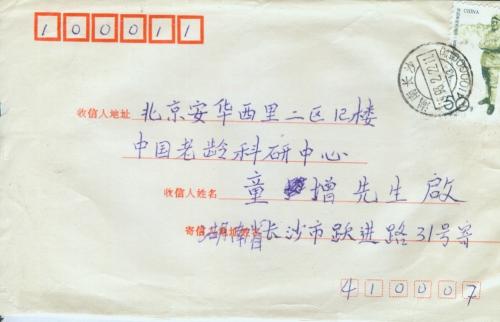 100011
CHINA
湖南长沙
收信人地址 北京安华西里二区12楼
中国老龄科研中心
收信人姓名 童增先生啟
湖南省长沙市跃进路31号寄
410007